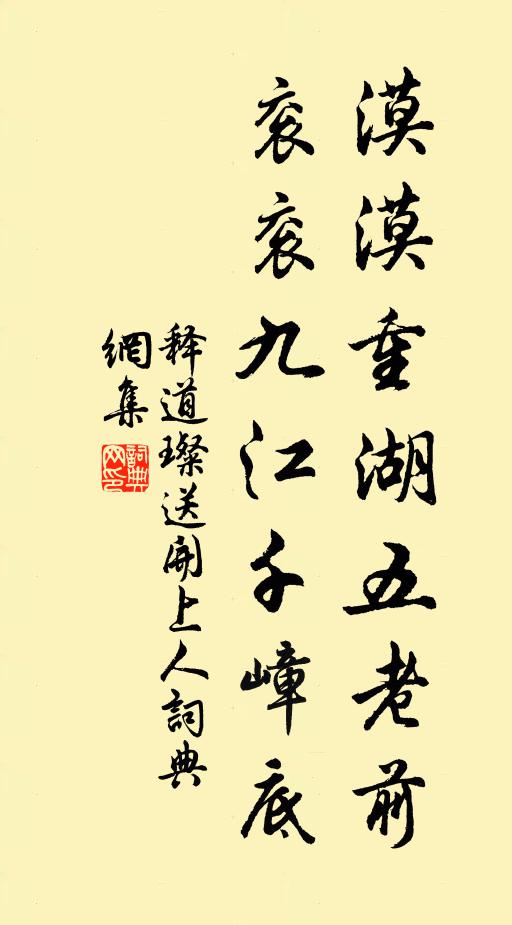 漠漠重湖五老前
衮衮九江千嶂底
释道璨送開上人詞典
網集
詞典
网印